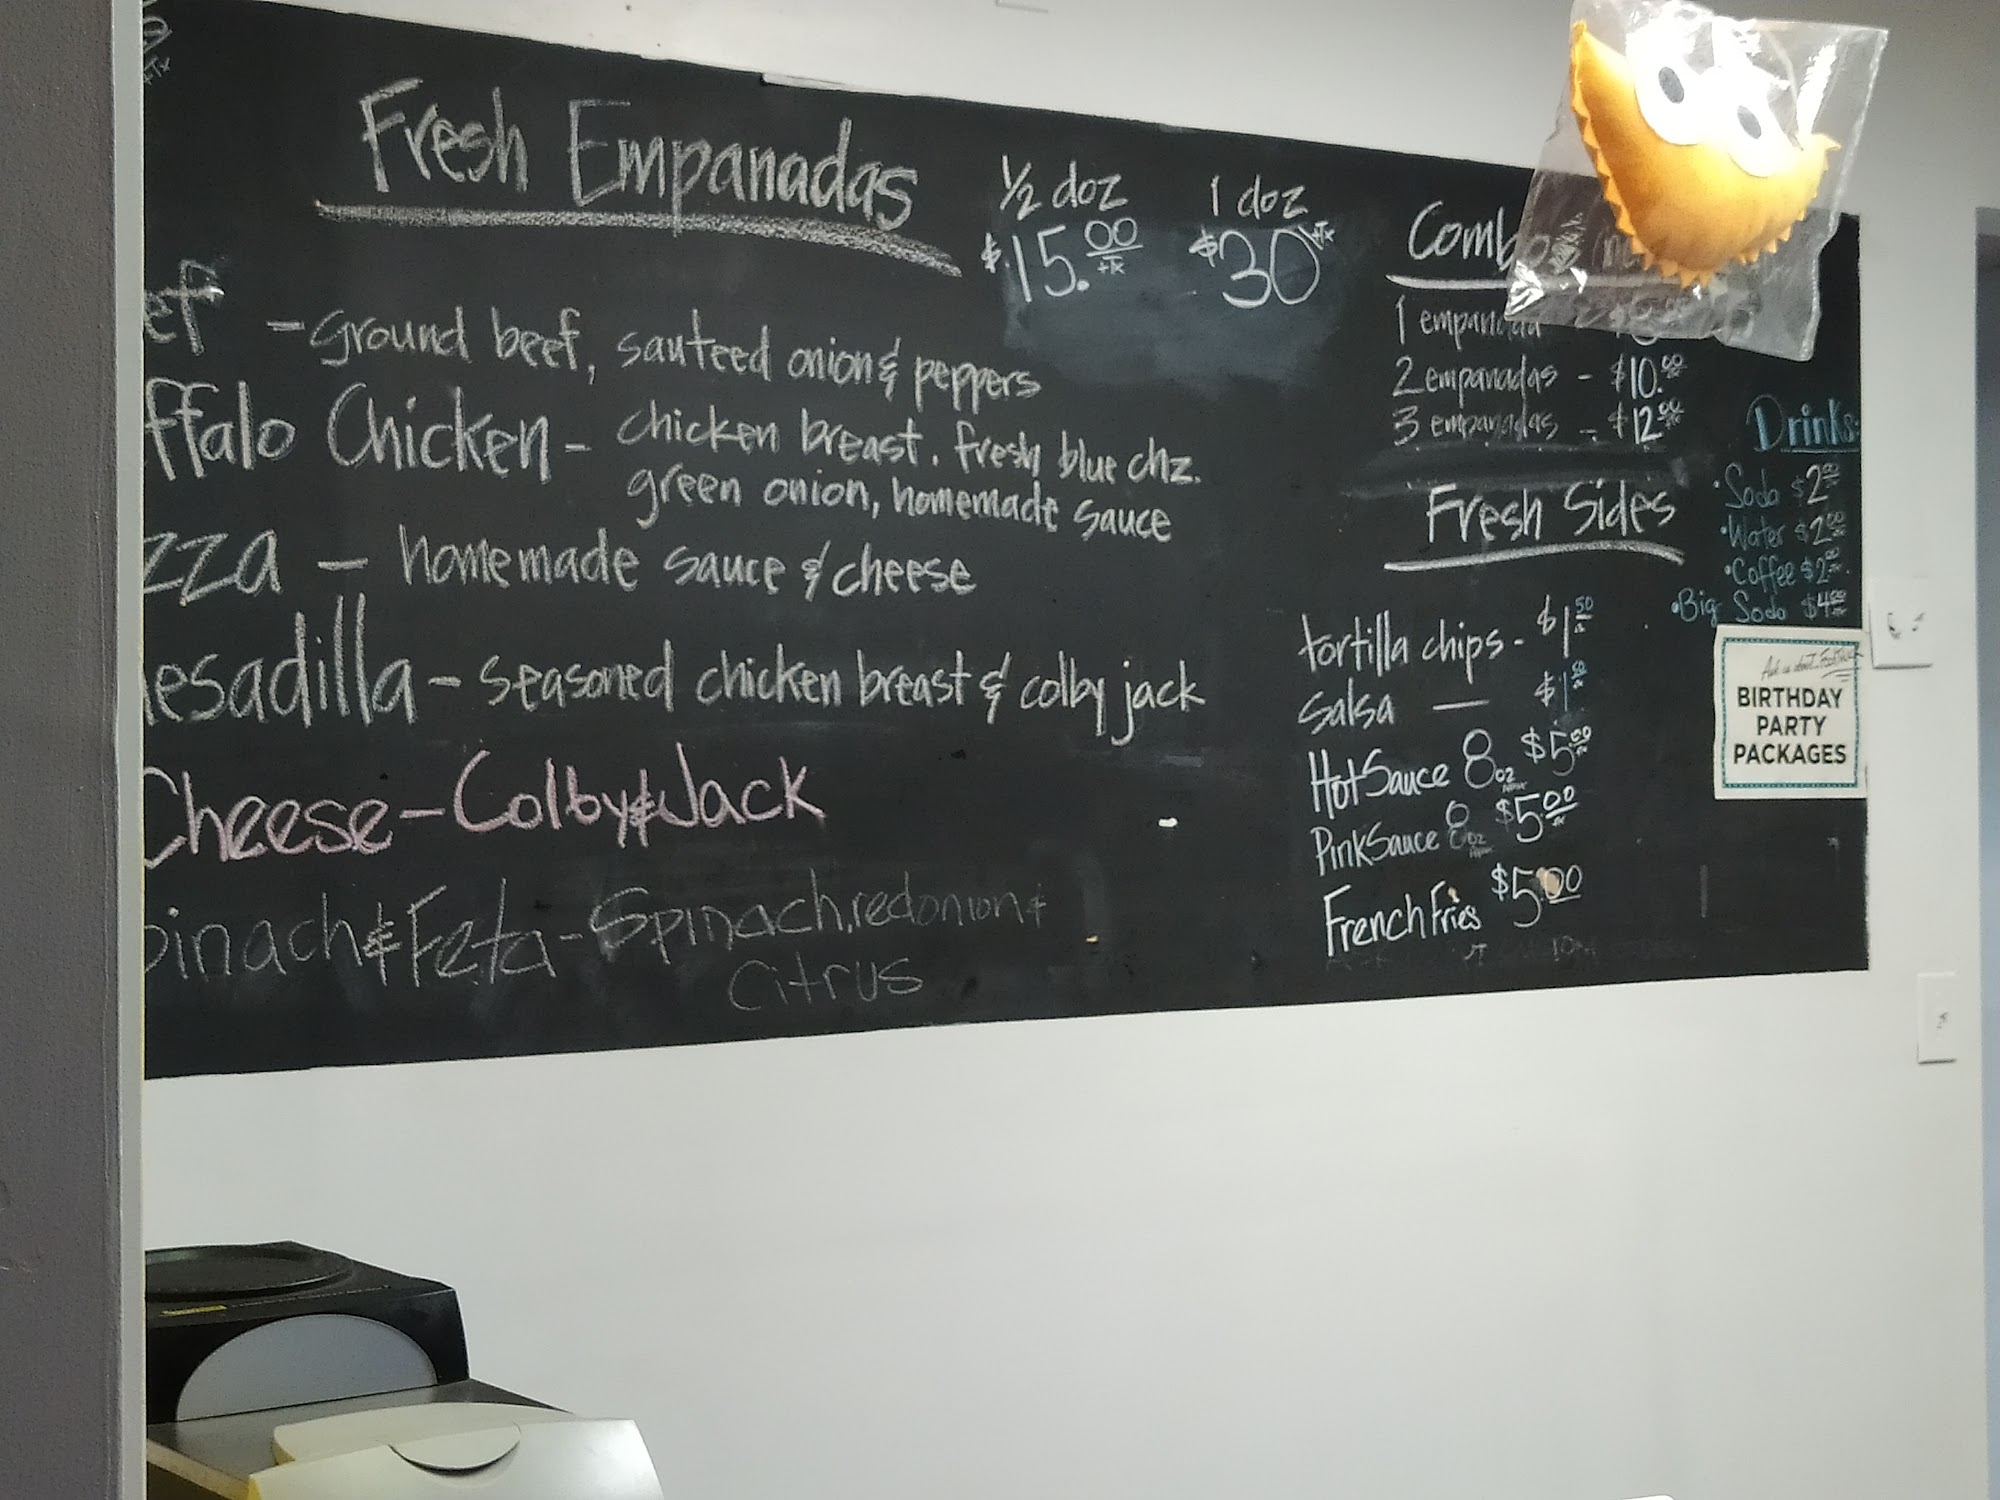 Fresh Empanadas
1/2 doz
$15.00 +Tx
1 doz
$30 +Tx
ef - ground beef, sauteed onion & peppers
ffalo Chicken - chicken breast. fresh blue chz.
green onion, homemade sauce
zza - homemade sauce & cheese
esadilla - seasoned chicken breast & colby jack
Cheese - Colby & Jack
pinach & Feta - Spinach, red onion &
citrus
Comb
1 empanada
2 empanadas - $10.00
3 empanadas - $12.00
Fresh Sides
tortilla chips - $1.50
salsa - $1.50
Hot Sauce 8oz $5.00
Pink Sauce 8oz $5.00
French Fries $5.00
Drinks:
• Soda $2.00
• Water $2.00
• Coffee $2.00
• Big Soda $4.00
Ask us about
BIRTHDAY
PARTY
PACKAGES